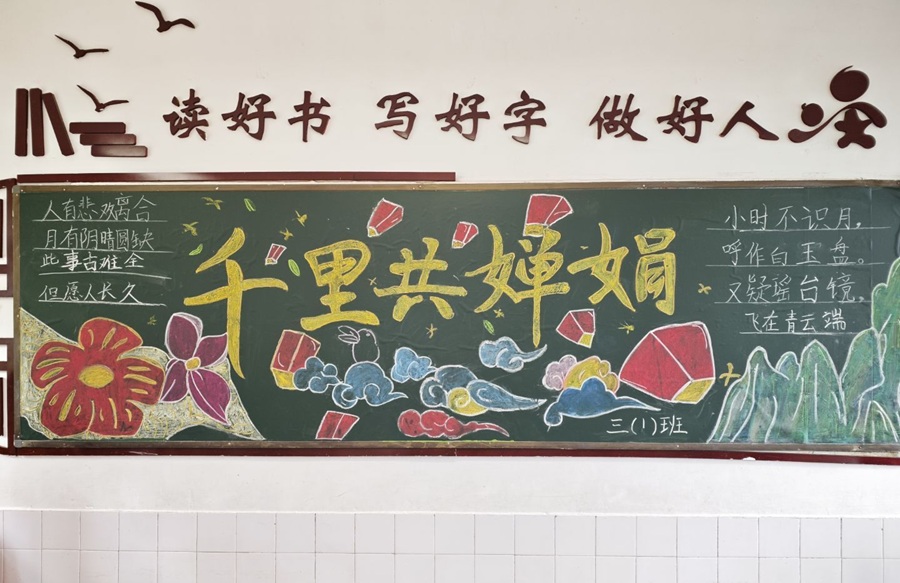 读好书 写好字 做好人
人有悲欢离合
月有阴晴圆缺
此事古难全
但愿人长久
千里共婵娟
小时不识月,
呼作白玉盘。
又疑瑶台镜,
飞在青云端
三(1)班